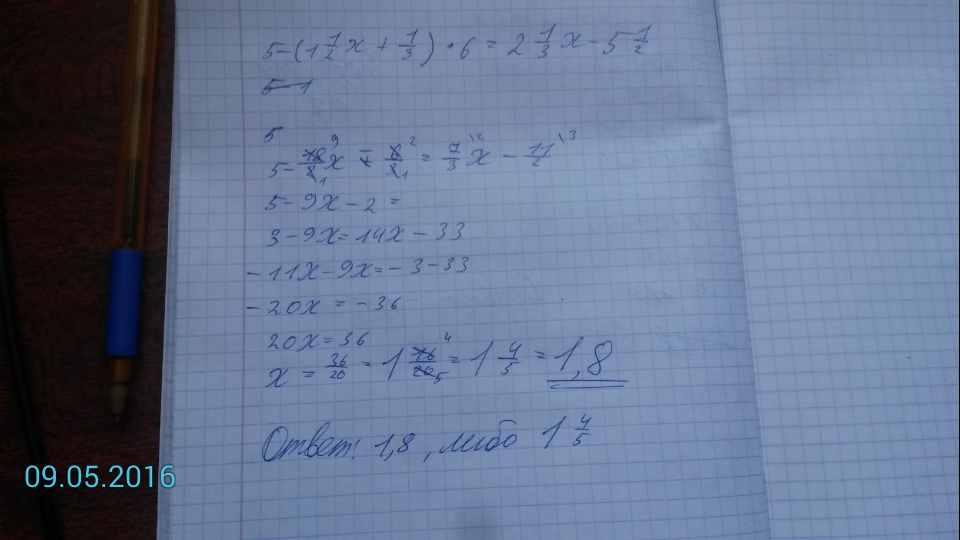 5-(1 1/2 x + 1/3) · 6 = 2 1/3 x - 5 1/2
5-1
5
5 - 18/2 x - 6/3 = 7/3 x - 11/2
5 - 9x - 2 =
3 - 9x = 14x - 33
-11x - 9x = -3 - 33
-20x = -36
20x = 36
x = 36/20 = 1 16/20 = 1 4/5 = 1,8
Ответ: 1,8, либо 1 4/5
09.05.2016